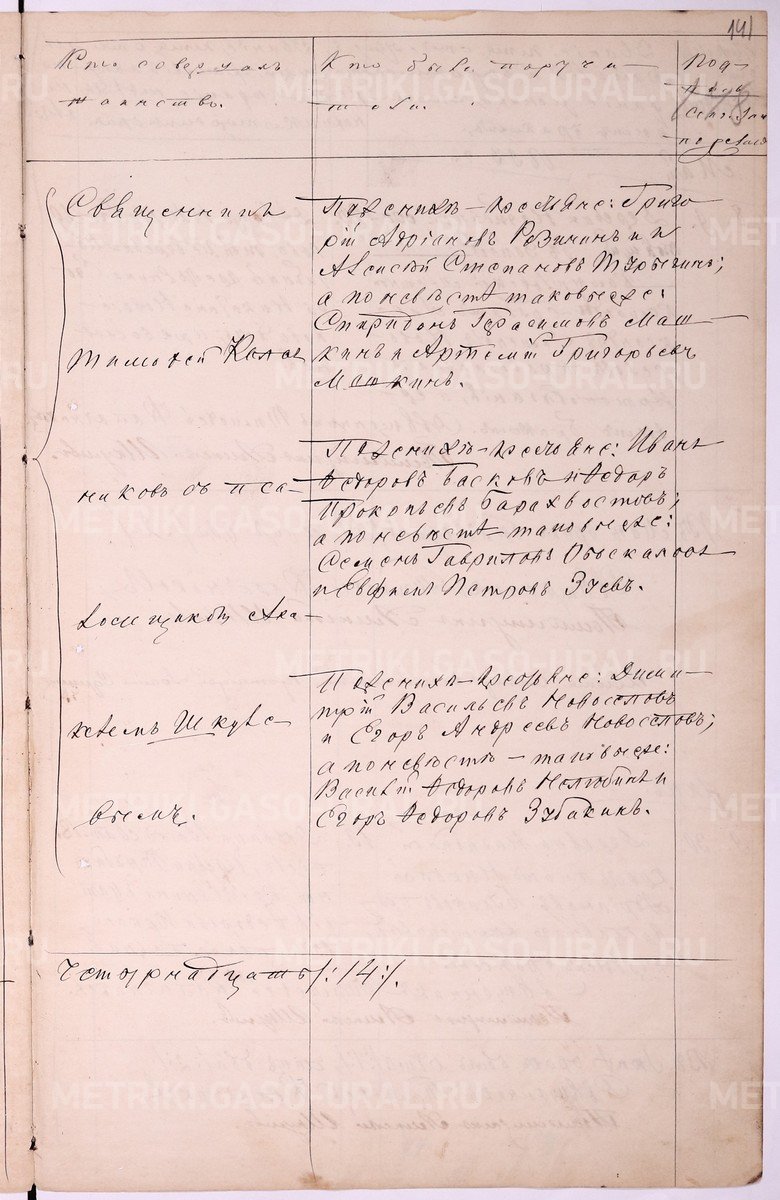 141
Кто совершалъ
таинство.
Кто были поручи-
тели.
Под-
пись
свидѣт.
по желан.
Священникъ
Тимоѳей Калаш-
никовъ съ пса-
ломщикомъ Ага-
ѳѣемъ Шкуле-
вымъ.
По женихѣ – крестьяне: Григо-
рій Адріановъ Рѣзчинъ и
Алексѣй Степановъ Турыгинъ;
а по невѣстѣ таковые же:
Спиридонъ Герасимовъ Маш-
кинъ и Артемій Григорьевъ
Машкинъ.
По женихѣ – крестьяне: Иванъ
Ѳедоровъ Басковъ и Ѳедоръ
Прокопьевъ Барахвостовъ;
а по невѣстѣ – таковые же:
Семенъ Гавриловъ Обоскаловъ
и Евфимъ Петровъ Зуевъ.
По женихѣ – крестьяне: Дими-
трій Васильевъ Новоселовъ
и Егоръ Андреевъ Новоселовъ;
а по невѣстѣ – таковые же:
Василій Ѳедоровъ Нелюбинъ и
Егоръ Ѳедоровъ Зубакинъ.
Четырнадцать /:14:/.
METRIKI.GASO-URAL.RU